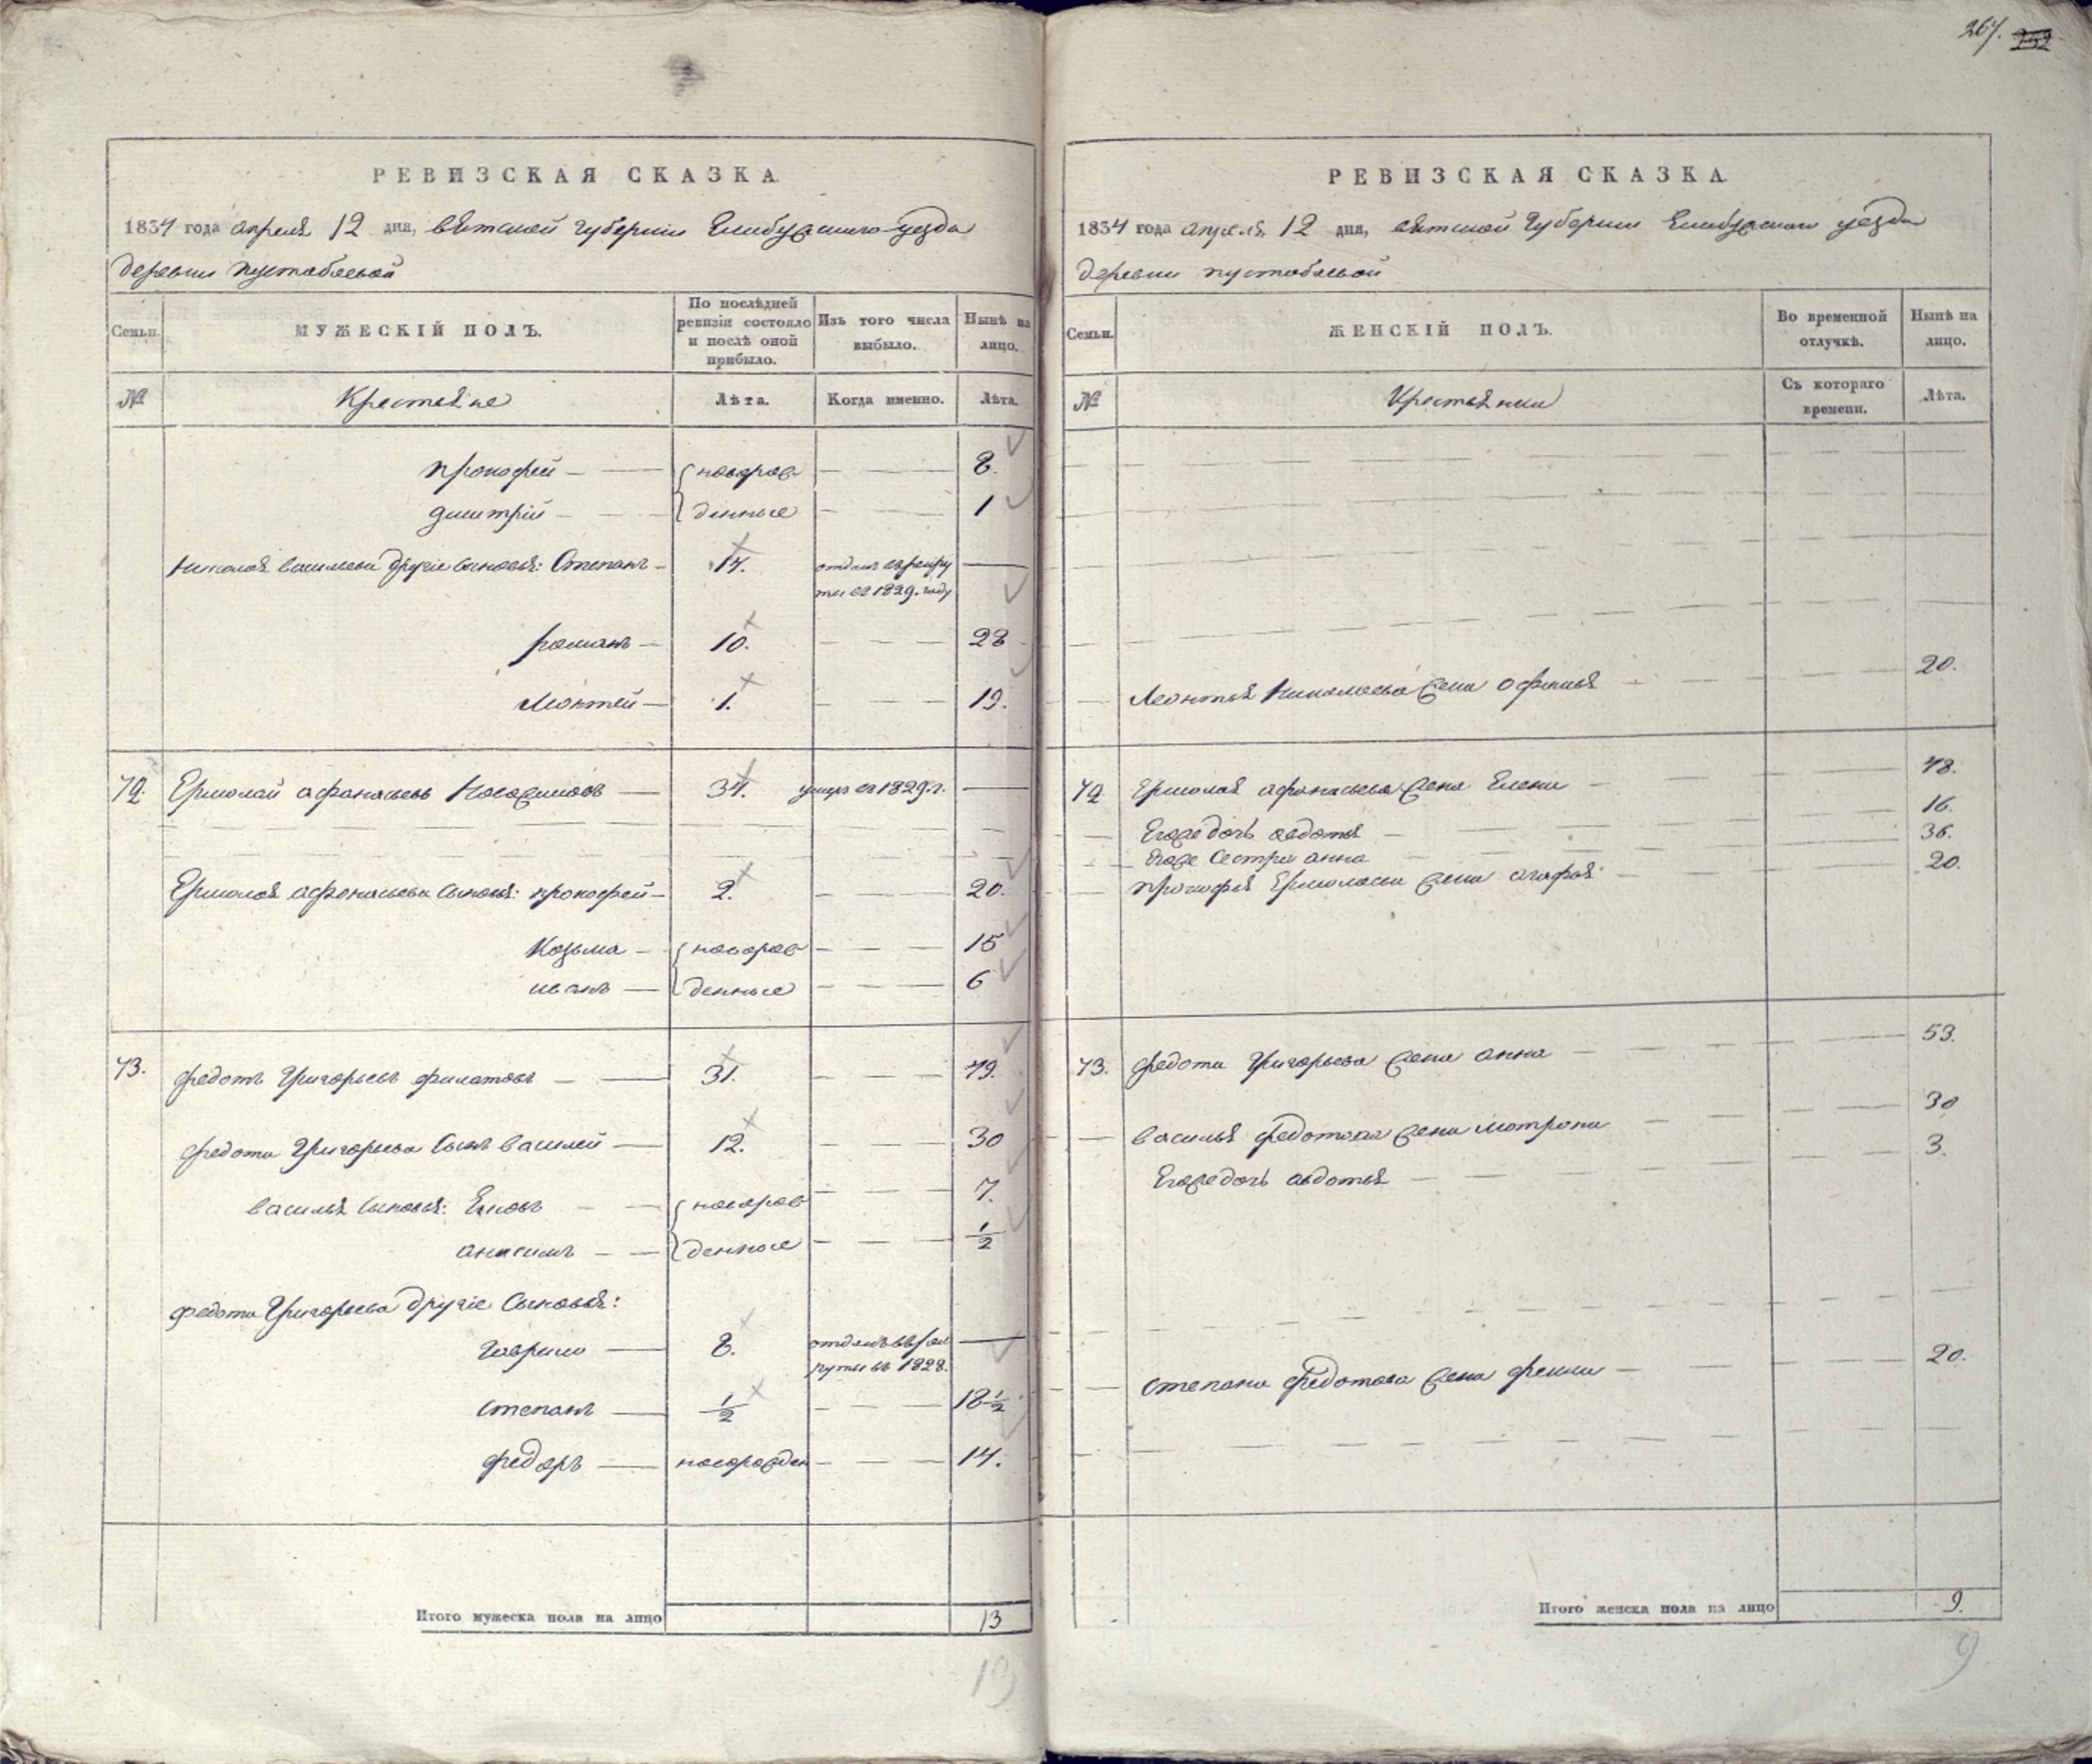 267. 252
РЕВИЗСКАЯ СКАЗКА.
1834 года апреля 12 дня, вятской губернии Елабужского уезда
деревни пустобаевой
Семьи.
МУЖЕСКІЙ ПОЛЪ.
По послѣдней ревизіи состояло и послѣ оной прибыло.
Изъ того числа выбыло.
Нынѣ на лицо.
№ Крестьяне Лѣта. Когда именно. Лѣта.
прокофей новорож 8.
дмитрій денные 1
Николая васильева другіе сыновья: Степанъ 14. отданъ въ рекру
ты въ 1829. году
романъ 10. 28
леонтей 1. 19.
72. Ермолай афанасьевъ 34. умеръ въ 1829. г.
Ермолая афонасьева сыновья: прокофей 2. 20.
Козьма новорож 15
иванъ денные 6
73. федотъ Григорьевъ филатовъ 31. 49.
федота Григорьева сынъ василей 12. 30
василья сыновья: новорож 7.
анисимъ денные 1/2
федота Григорьева другіе сыновья:
Гаврило 8. отданъ въ рек
руты въ 1828.
степанъ 1/2 18 1/2
федоръ новорожден 14.
Итого мужеска пола на лицо 13
13
РЕВИЗСКАЯ СКАЗКА
1834 года апреля 12 дня, вятской губернии Елабужского уезда
деревни пустобаевой
Семьи.
ЖЕНСКІЙ ПОЛЪ.
Во временной отлучкѣ.
Нынѣ на лицо.
№ Крестьянки Съ котораго времени. Лѣта.
Леонтья Николаева жена офимья 20.
72 Ермолая афонасьева жена Елена 48.
Егоже дочь авдотья 16.
Егоже сестра анна 36.
прокофья Ермолаева жена агафья 20.
73. федота Григорьева жена анна 53.
василья федотова жена матрона 30
Егоже дочь авдотья 3.
степана федотова жена фекла 20.
Итого женска пола на лицо 9.
9